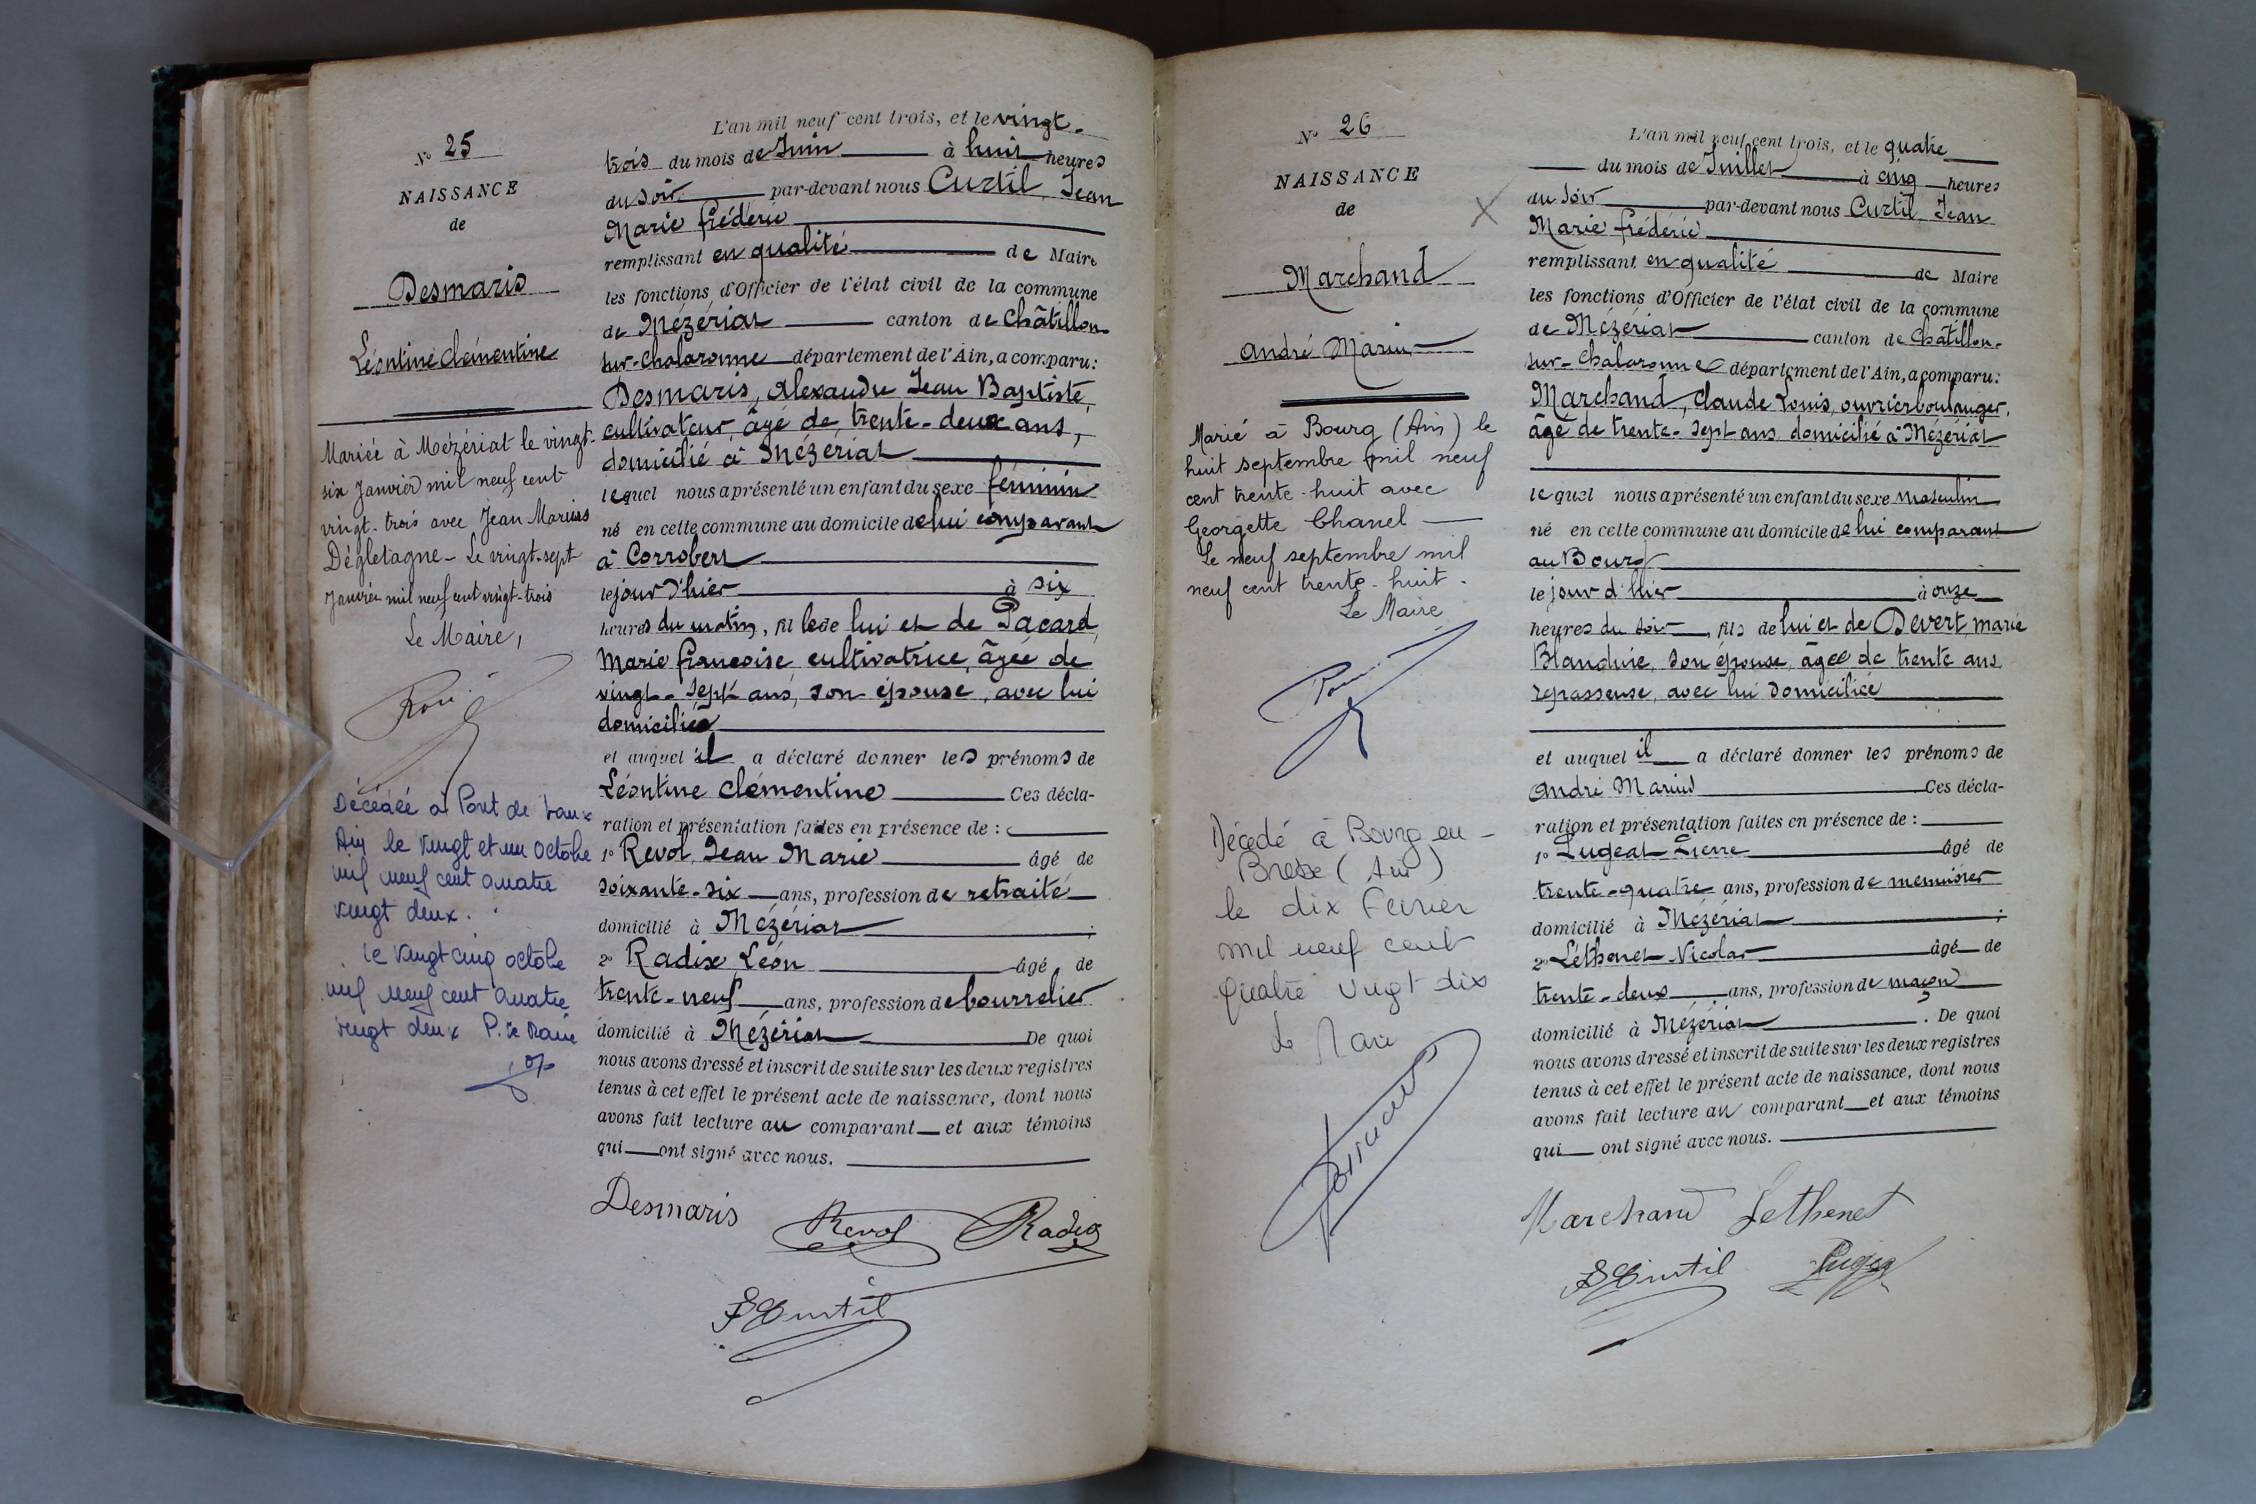 N° 25
NAISSANCE
de
Desmaris
Léontine Clémentine
Mariée à Mézériat le vingt-
six Janvier mil neuf cent
vingt-trois avec Jean Marius
Dégletagne - Le vingt-sept
Janvier mil neuf cent vingt-trois
Le Maire,
Décédée à Pont de Vaux
Ain le vingt et un octobre
mil neuf cent quatre
vingt deux.
le vingt cinq octobre
mil neuf cent quatre
vingt deux P. le Maire
L'an mil neuf cent trois, et le vingt-
trois du mois de Juin à huit heures
du soir par-devant nous Curtil, Jean
Marie frédéric
remplissant en qualité de Maire
les fonctions d'Officier de l'état civil de la commune
de Mézériat canton de Châtillon-
sur-Chalaronne département de l'Ain, a comparu:
Desmaris, Alexandre Jean Baptiste,
cultivateur, âgé de trente-deux ans,
domicilié à Mézériat
lequel nous a présenté un enfant du sexe féminin
né en cette commune au domicile de lui comparant
à Corrobert
le jour d'hier à six
heures du matin, fille de lui et de Pacard,
Marie françoise, cultivatrice, âgée de
vingt-sept ans, son épouse, avec lui
domiciliée
et auquel il a déclaré donner les prénoms de
Léontine Clémentine Ces décla-
ration et présentation faites en présence de :
1° Revol, Jean Marie âgé de
soixante-six ans, profession de retraité
domicilié à Mézériat ;
2° Radix Léon âgé de
trente-neuf ans, profession de bourrelier
domicilié à Mézériat De quoi
nous avons dressé et inscrit de suite sur les deux registres
tenus à cet effet le présent acte de naissance, dont nous
avons fait lecture au comparant et aux témoins
qui ont signé avec nous.
Desmaris Revol Radix
F Curtil
N° 26
NAISSANCE
de
Marchand
André Marius
Marié à Bourg (Ain) le
huit septembre mil neuf
cent trente-huit avec
Georgette Chanel
Le neuf septembre mil
neuf cent trente-huit.
Le Maire
Décédé à Bourg en-
Bresse (Ain)
le dix Février
mil neuf cent
quatre vingt dix
Le Maire
L'an mil neuf cent trois, et le quatre
du mois de Juillet à cinq heures
du soir par-devant nous Curtil, Jean
Marie frédéric
remplissant en qualité de Maire
les fonctions d'Officier de l'état civil de la commune
de Mézériat canton de Châtillon-
sur-Chalaronne département de l'Ain, a comparu:
Marchand, Claude Louis, ouvrier boulanger,
âgé de trente-sept ans, domicilié à Mézériat
lequel nous a présenté un enfant du sexe masculin
né en cette commune au domicile de lui comparant
au Bourg
le jour d'hier à onze
heures du soir, fils de lui et de Devert, Marie
Blandine, son épouse, âgée de trente ans,
repasseuse, avec lui domiciliée
et auquel il a déclaré donner les prénoms de
André Marius Ces décla-
ration et présentation faites en présence de :
1° Lugeat Pierre âgé de
trente-quatre ans, profession de menuisier
domicilié à Mézériat ;
2° Léthenet Nicolas âgé de
trente-deux ans, profession de maçon
domicilié à Mézériat . De quoi
nous avons dressé et inscrit de suite sur les deux registres
tenus à cet effet le présent acte de naissance, dont nous
avons fait lecture au comparant et aux témoins
qui ont signé avec nous.
Marchand Lethenet
F Curtil